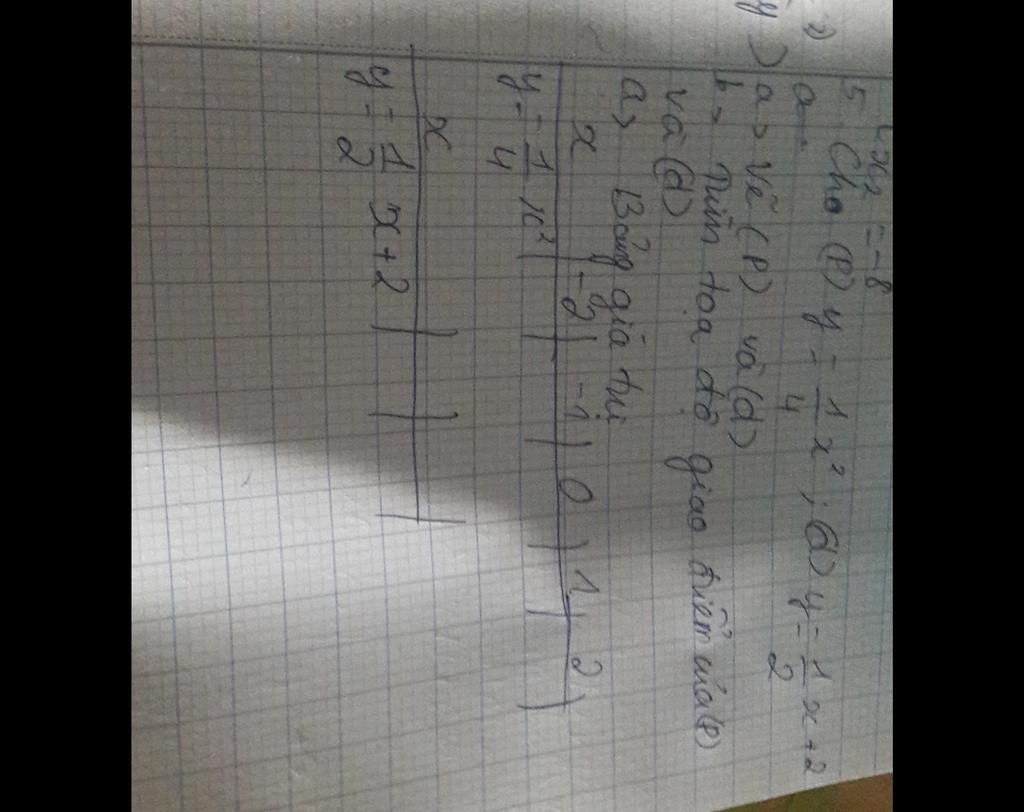 x₂ = -8
5. Cho (P) y = 1/4 x², (d) y = 1/2 x + 2
a > Vẽ (P) và (d)
b > Tìm tọa độ giao điểm của (P)
và (d)
a > Bảng giá trị
x | -2 | -1 | 0 | 1 | 2
y = 1/4 x²
x
y = 1/2 x + 2